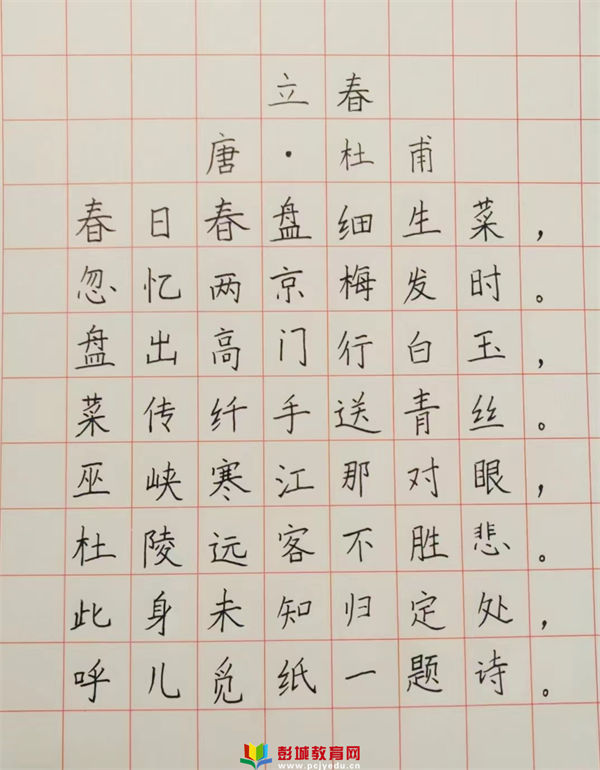 立春
唐·杜甫
春日春盘细生菜，
忽忆两京梅发时。
盘出高门行白玉，
菜传纤手送青丝。
巫峡寒江那对眼，
杜陵远客不胜悲。
此身未知归定处，
呼儿觅纸一题诗。
彭城教育网
www.pcjyedu.cn